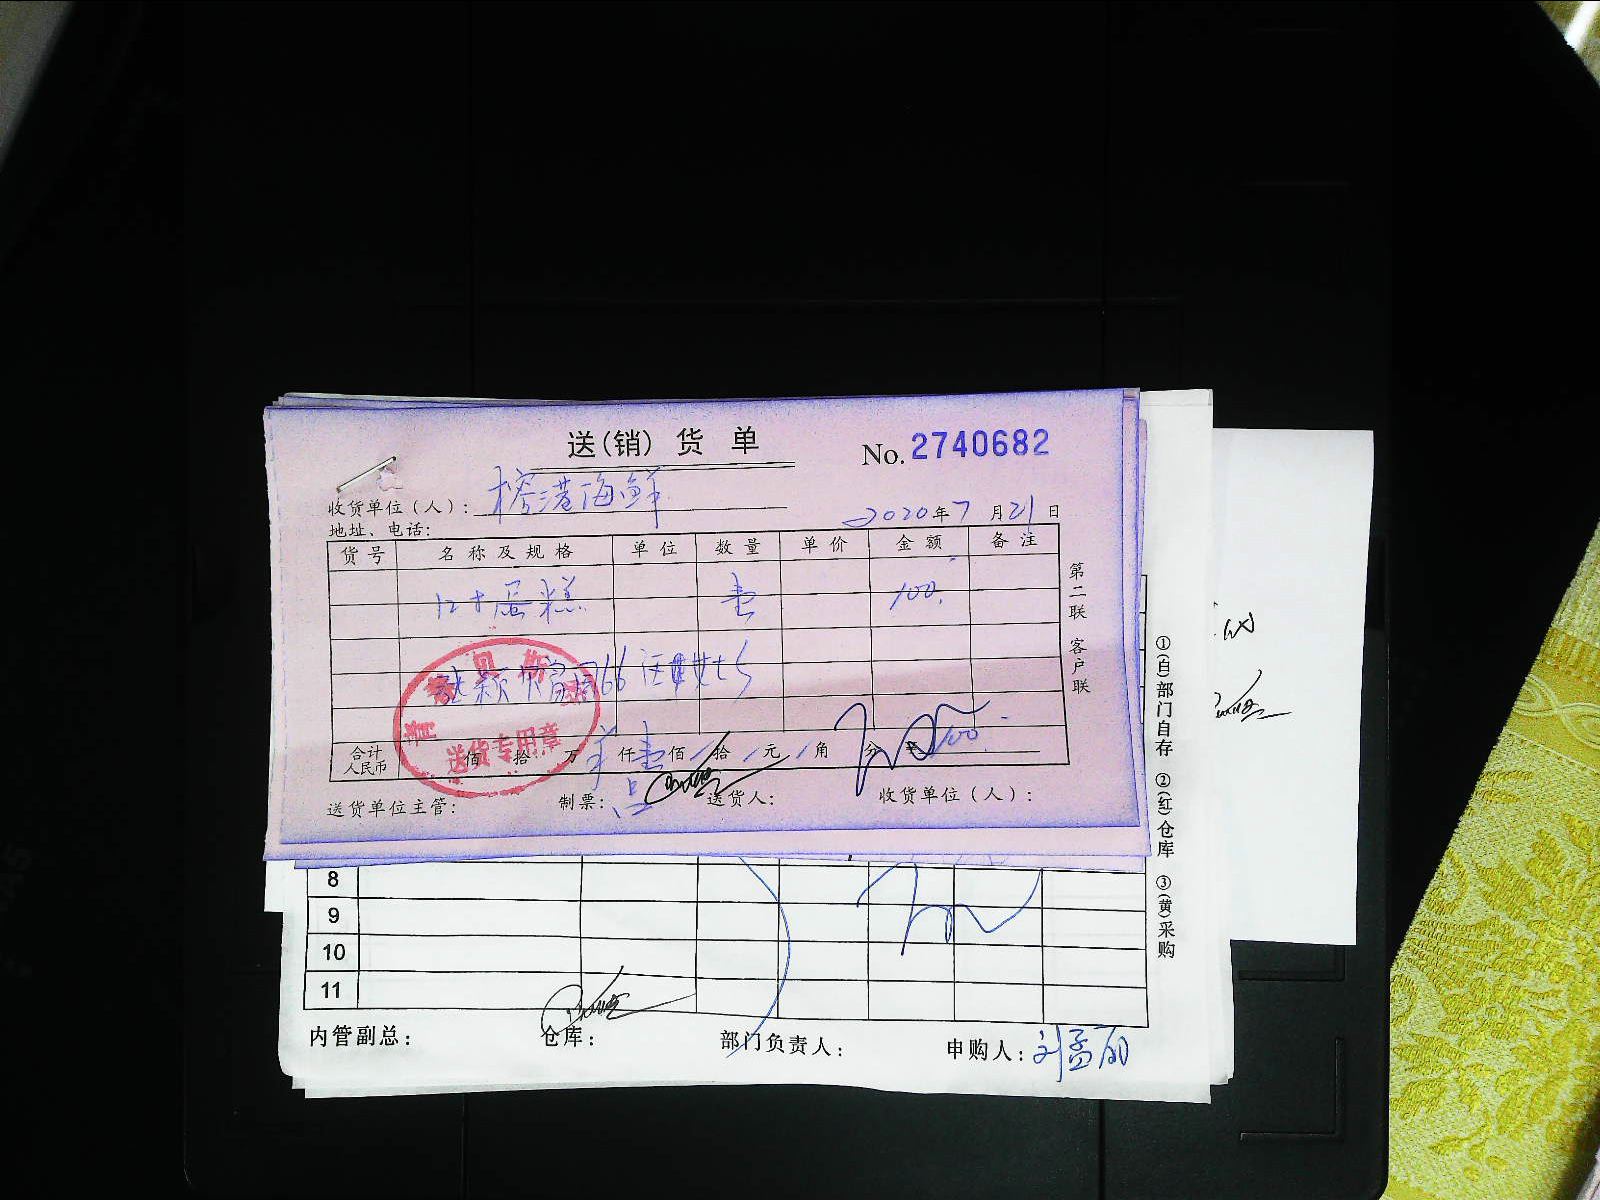 送(销)货单
No. 2740682
收货单位(人): 榕港海鲜
2020年7月21日
地址、电话:
货号 名称及规格 单位 数量 单价 金额 备注
12寸蛋糕 壹 100.
66 汪 女士
送货专用章
合计人民币 佰 拾 万 仟 壹 佰 拾 元 角 分 ¥100.
送货单位主管: 制票: 送货人: 收货单位(人):
第二联 客户联
8
9
10
11
内管副总: 仓库: 部门负责人: 申购人: 刘孟丽
①(白)部门自存 ②(红)仓库 ③(黄)采购